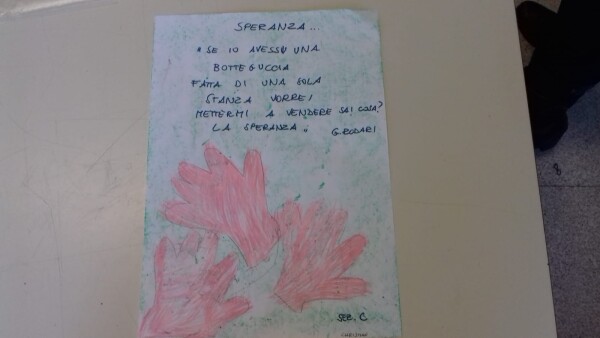 SPERANZA...
"SE IO AVESSI UNA
BOTTEGUCCIA
FATTA DI UNA SOLA
STANZA VORREI
METTERMI A VENDERE SAI COSA?
LA SPERANZA"
G. RODARI
SEZ. C